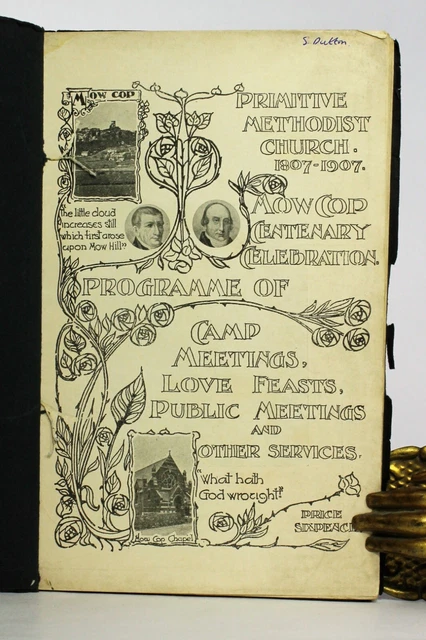 S. Dutton.
MOW COP
PRIMITIVE
METHODIST
CHURCH.
1807-1907.
"The little cloud
increases still
which first arose
upon Mow Hill"
MOW COP
CENTENARY
CELEBRATION.
PROGRAMME OF
CAMP
MEETINGS,
LOVE FEASTS,
PUBLIC MEETINGS
AND
OTHER SERVICES.
"What hath
God wrought!"
Mow Cop Chapel
PRICE
SIXPENCE